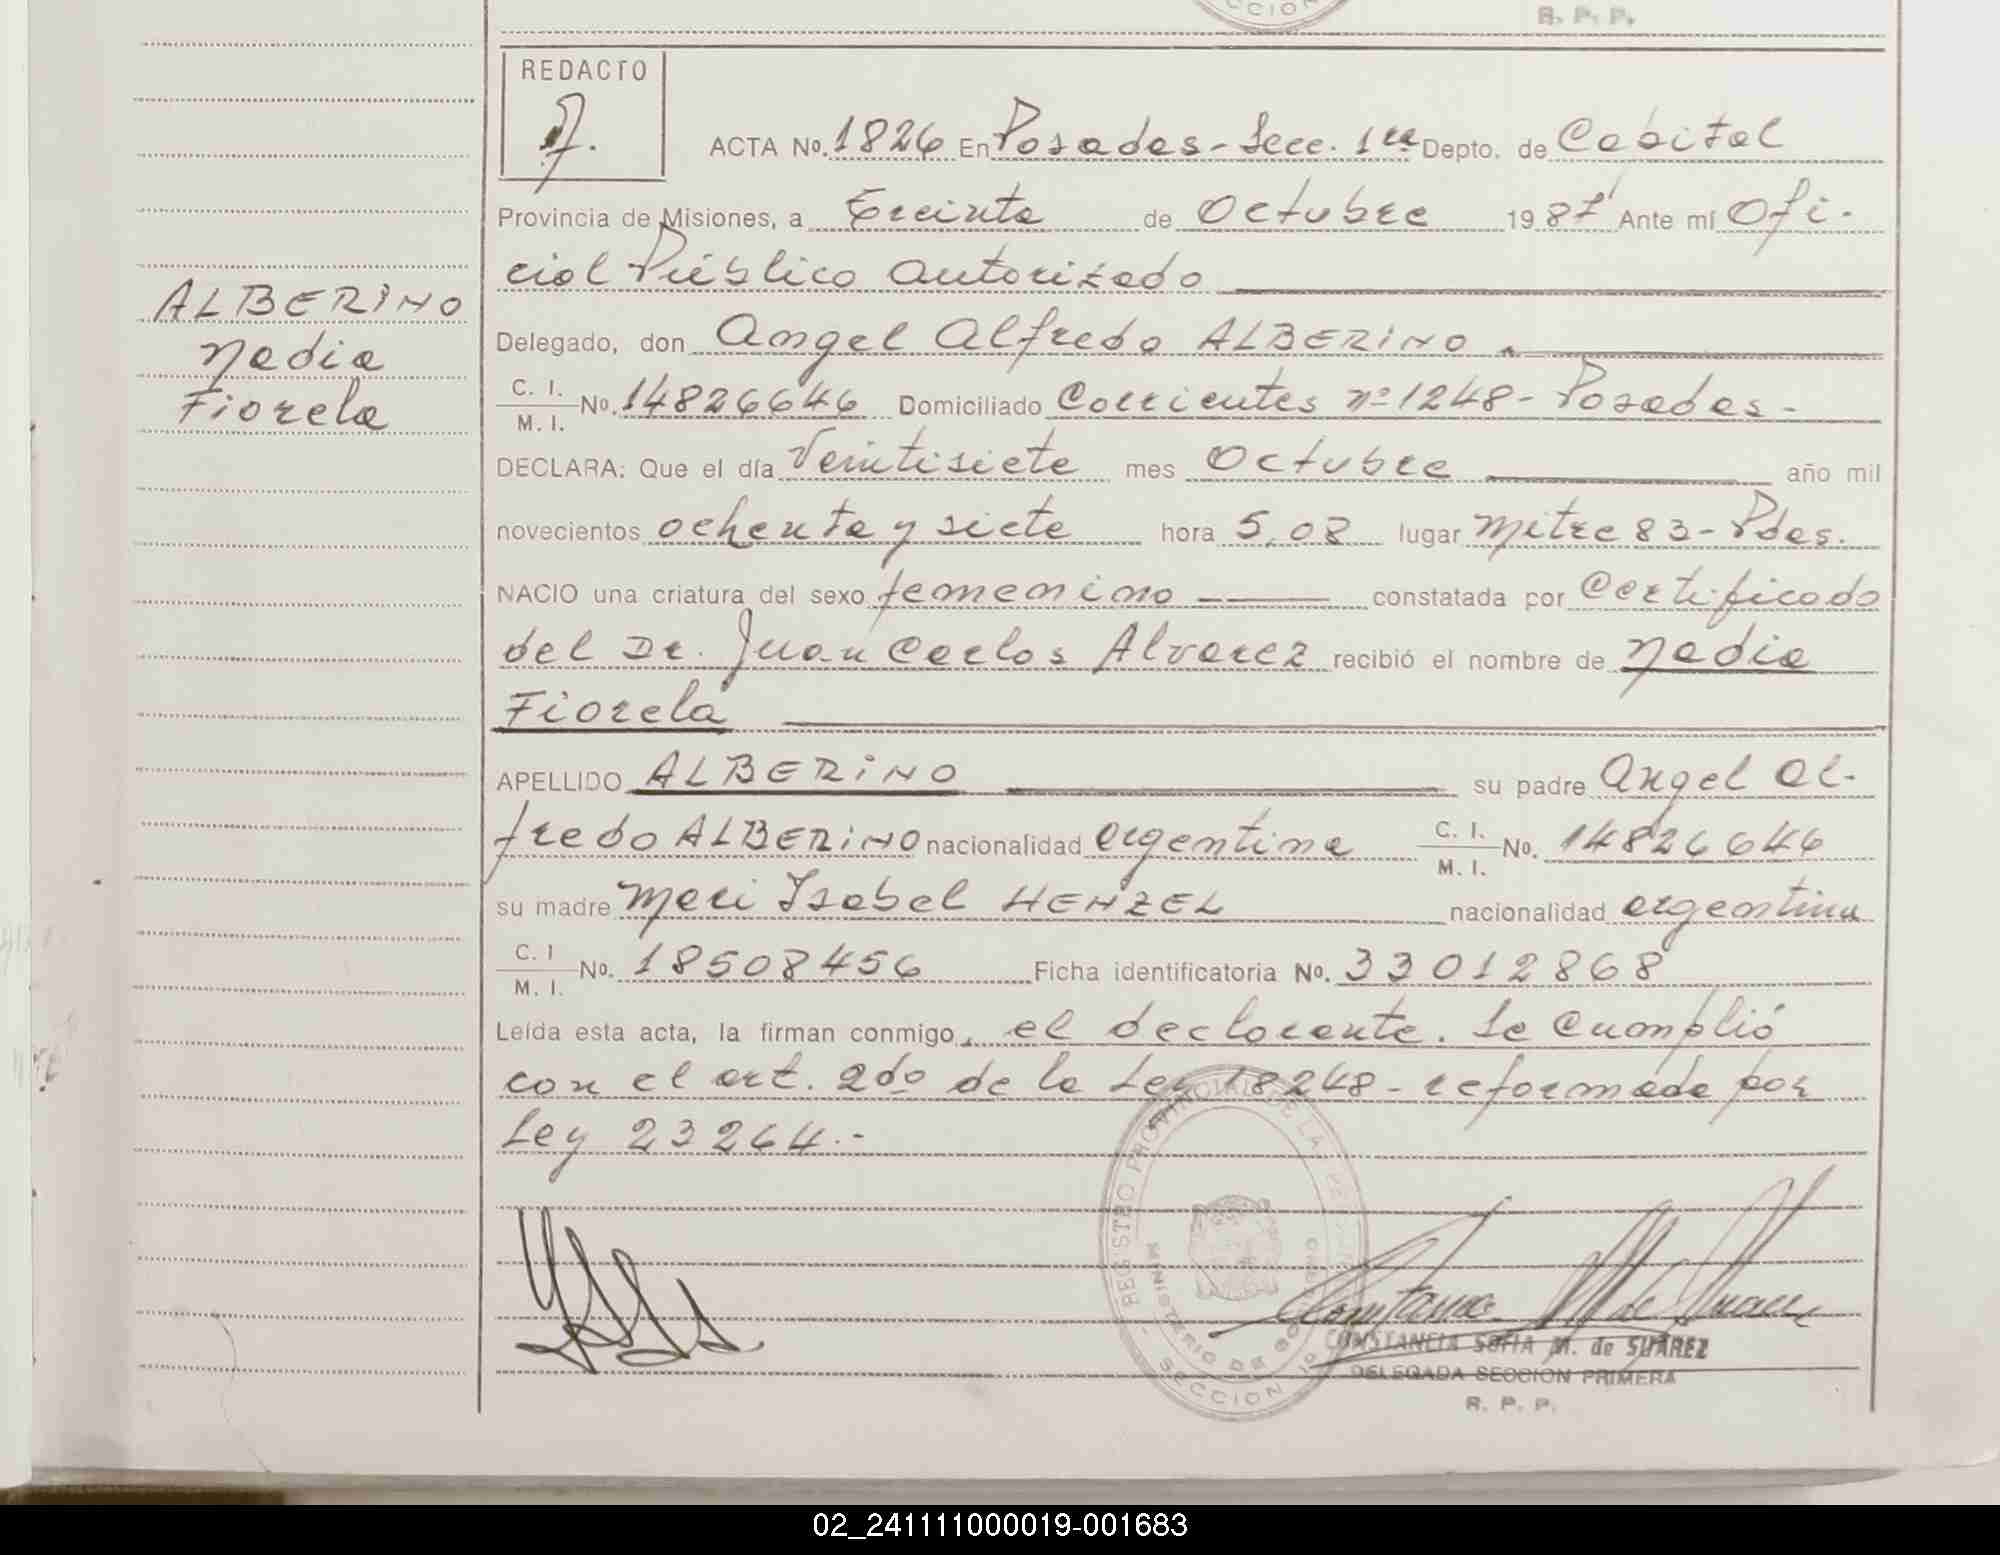 CCION
R. P. P.
REDACTO
ACTA Nº. 1826 En Posadas - Secc. 1ra Depto. de Capital
Provincia de Misiones, a treinta de Octubre 1987 Ante mí Ofi-
cial Público autorizado
Delegado, don Angel Alfredo ALBERINO.
C. I.
M. I. Nº. 14826646 Domiciliado Corrientes nº 1248 - Posadas -
DECLARA: Que el día Veintisiete mes Octubre año mil
novecientos ochenta y siete hora 5,08 lugar Mitre 83 - Pdas.
NACIO una criatura del sexo femenino constatada por Certificado
del Dr. Juan Carlos Alvarez recibió el nombre de Nadia
Fiorela
APELLIDO ALBERINO su padre Angel Al-
fredo ALBERINO nacionalidad argentina C. I.
M. I. No. 14826646
su madre Mari Isabel HENZEL nacionalidad argentina
C. I
M. I. No. 18508456 Ficha identificatoria Nº. 33012868
Leída esta acta, la firman conmigo, el declarante. Se Cumplió
con el art. 2do de la Ley 18248 - reformada por
Ley 23264.-
ALBERINO
Nadia
Fiorela
REGISTRO PROVINCIAL DE LA
MINISTERIO DE GOBIERNO
SECCION 1º
CONSTANCIA SOFIA M. de SUAREZ
DELEGADA SECCION PRIMERA
R. P. P.
02_241111000019-001683